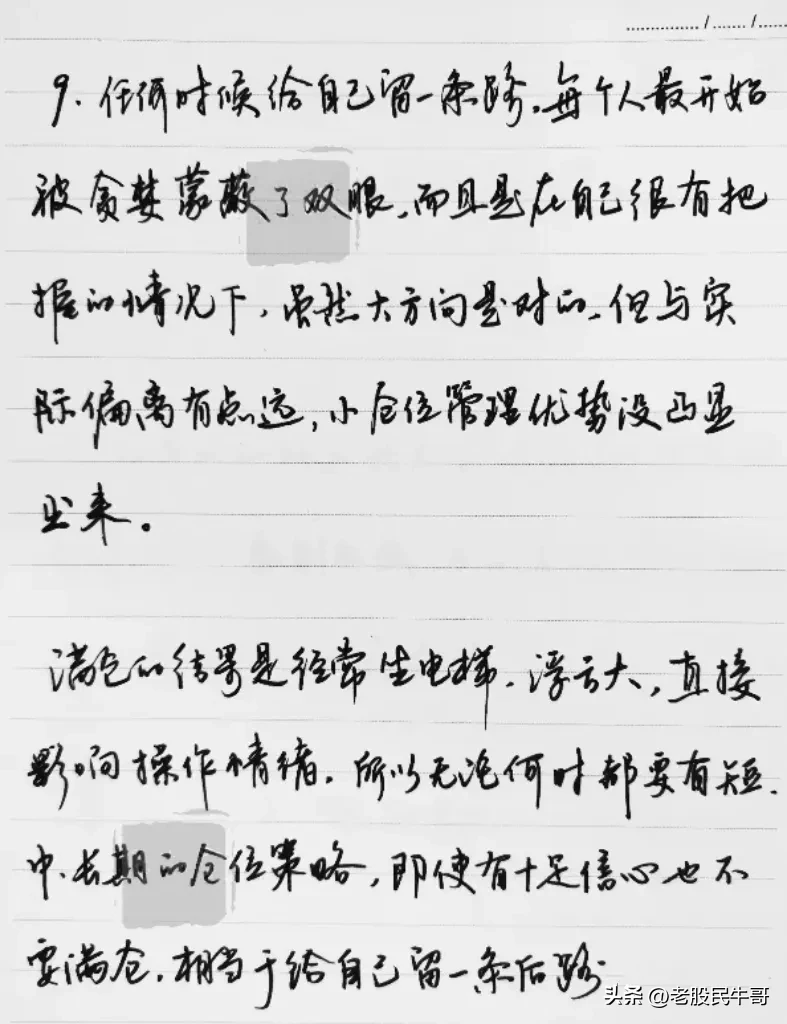 ............/....../......
9.任何时候给自己留一条路。每个人最开始
被贪婪蒙蔽了双眼,而且是在自己很有把
握的情况下,虽然大方向是对的,但与实
际偏离有点远,小仓位管理优势没凸显
出来。
满仓的结果是经常坐电梯,浮亏大,直接
影响操作情绪,所以无论何时都要有短、
中、长期的仓位策略,即使有十足信心也不
要满仓,相当于给自己留一条后路
头条 @老股民牛哥